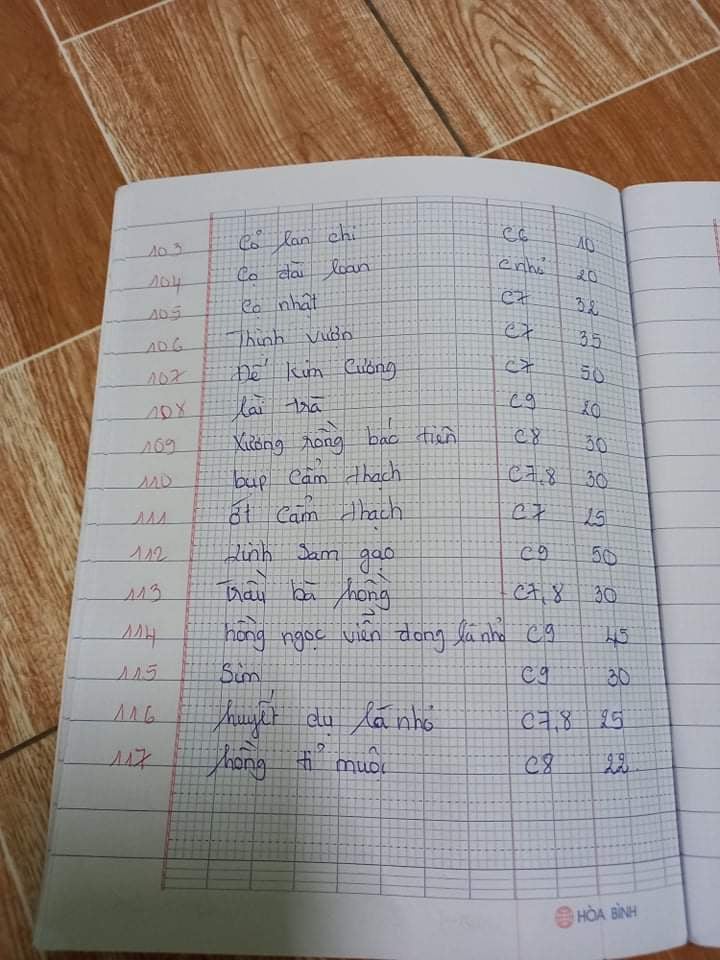 103 Cỏ lan chi C6 10
104 Cọ đài loan C nhỏ 20
105 Cọ nhật C7 32
106 Thịnh vườn C7 35
107 Đế kim cương C7 50
108 lài trã C9 20
109 Xương rồng bác tiên C8 30
110 bup Cẩm thạch C7,8 30
111 ớt Cẩm thạch C7 25
112 Linh Sam gạo C9 50
113 Trầu bà hồng C7,8 30
114 hồng ngọc viễn dong lá nhỏ C9 45
115 Sim C9 30
116 huyết dụ lá nhỏ C7,8 25
117 hồng tỉ muội C8 22
HÒA BÌNH